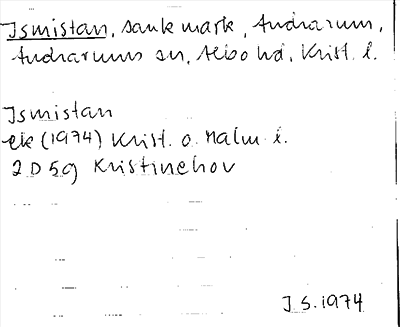 Ismistan, sank mark, Andrarum,
Andrarums sn, Albo hd, Krist. l.
Ismistan
ek (1974) Krist. o. Malm l.
2 D 5g Kristinehov
I S. 1974